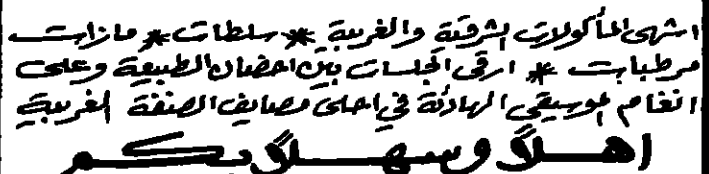 اشهى المأكولات الشرقية والغربية * سلطات * مازات
مرطبات * ارقى الجلسات بين احضان الطبيعة وعلى
انغام الموسيقى الهادئة في احلى مصايف الضفة الغربية
اهلاً وسهلاً بكم